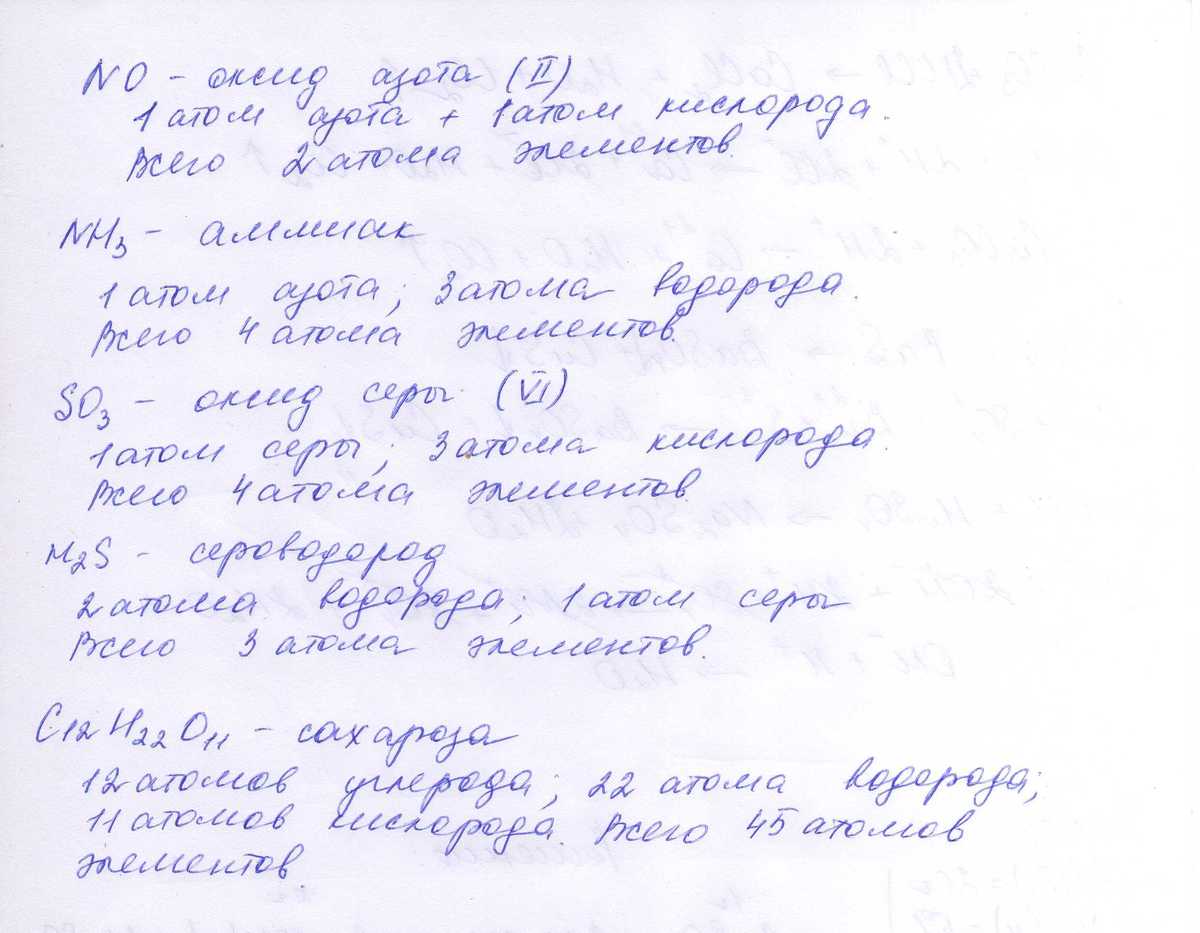 NO - оксид азота (II)
1 атом азота + 1 атом кислорода.
Всего 2 атома элементов.
NH₃ - аммиак
1 атом азота; 3 атома водорода.
Всего 4 атома элементов.
SO₃ - оксид серы (VI)
1 атом серы; 3 атома кислорода.
Всего 4 атома элементов.
H₂S - сероводород
2 атома водорода; 1 атом серы
Всего 3 атома элементов.
C₁₂H₂₂O₁₁ - сахароза
12 атомов углерода; 22 атома водорода;
11 атомов кислорода. Всего 45 атомов
элементов.